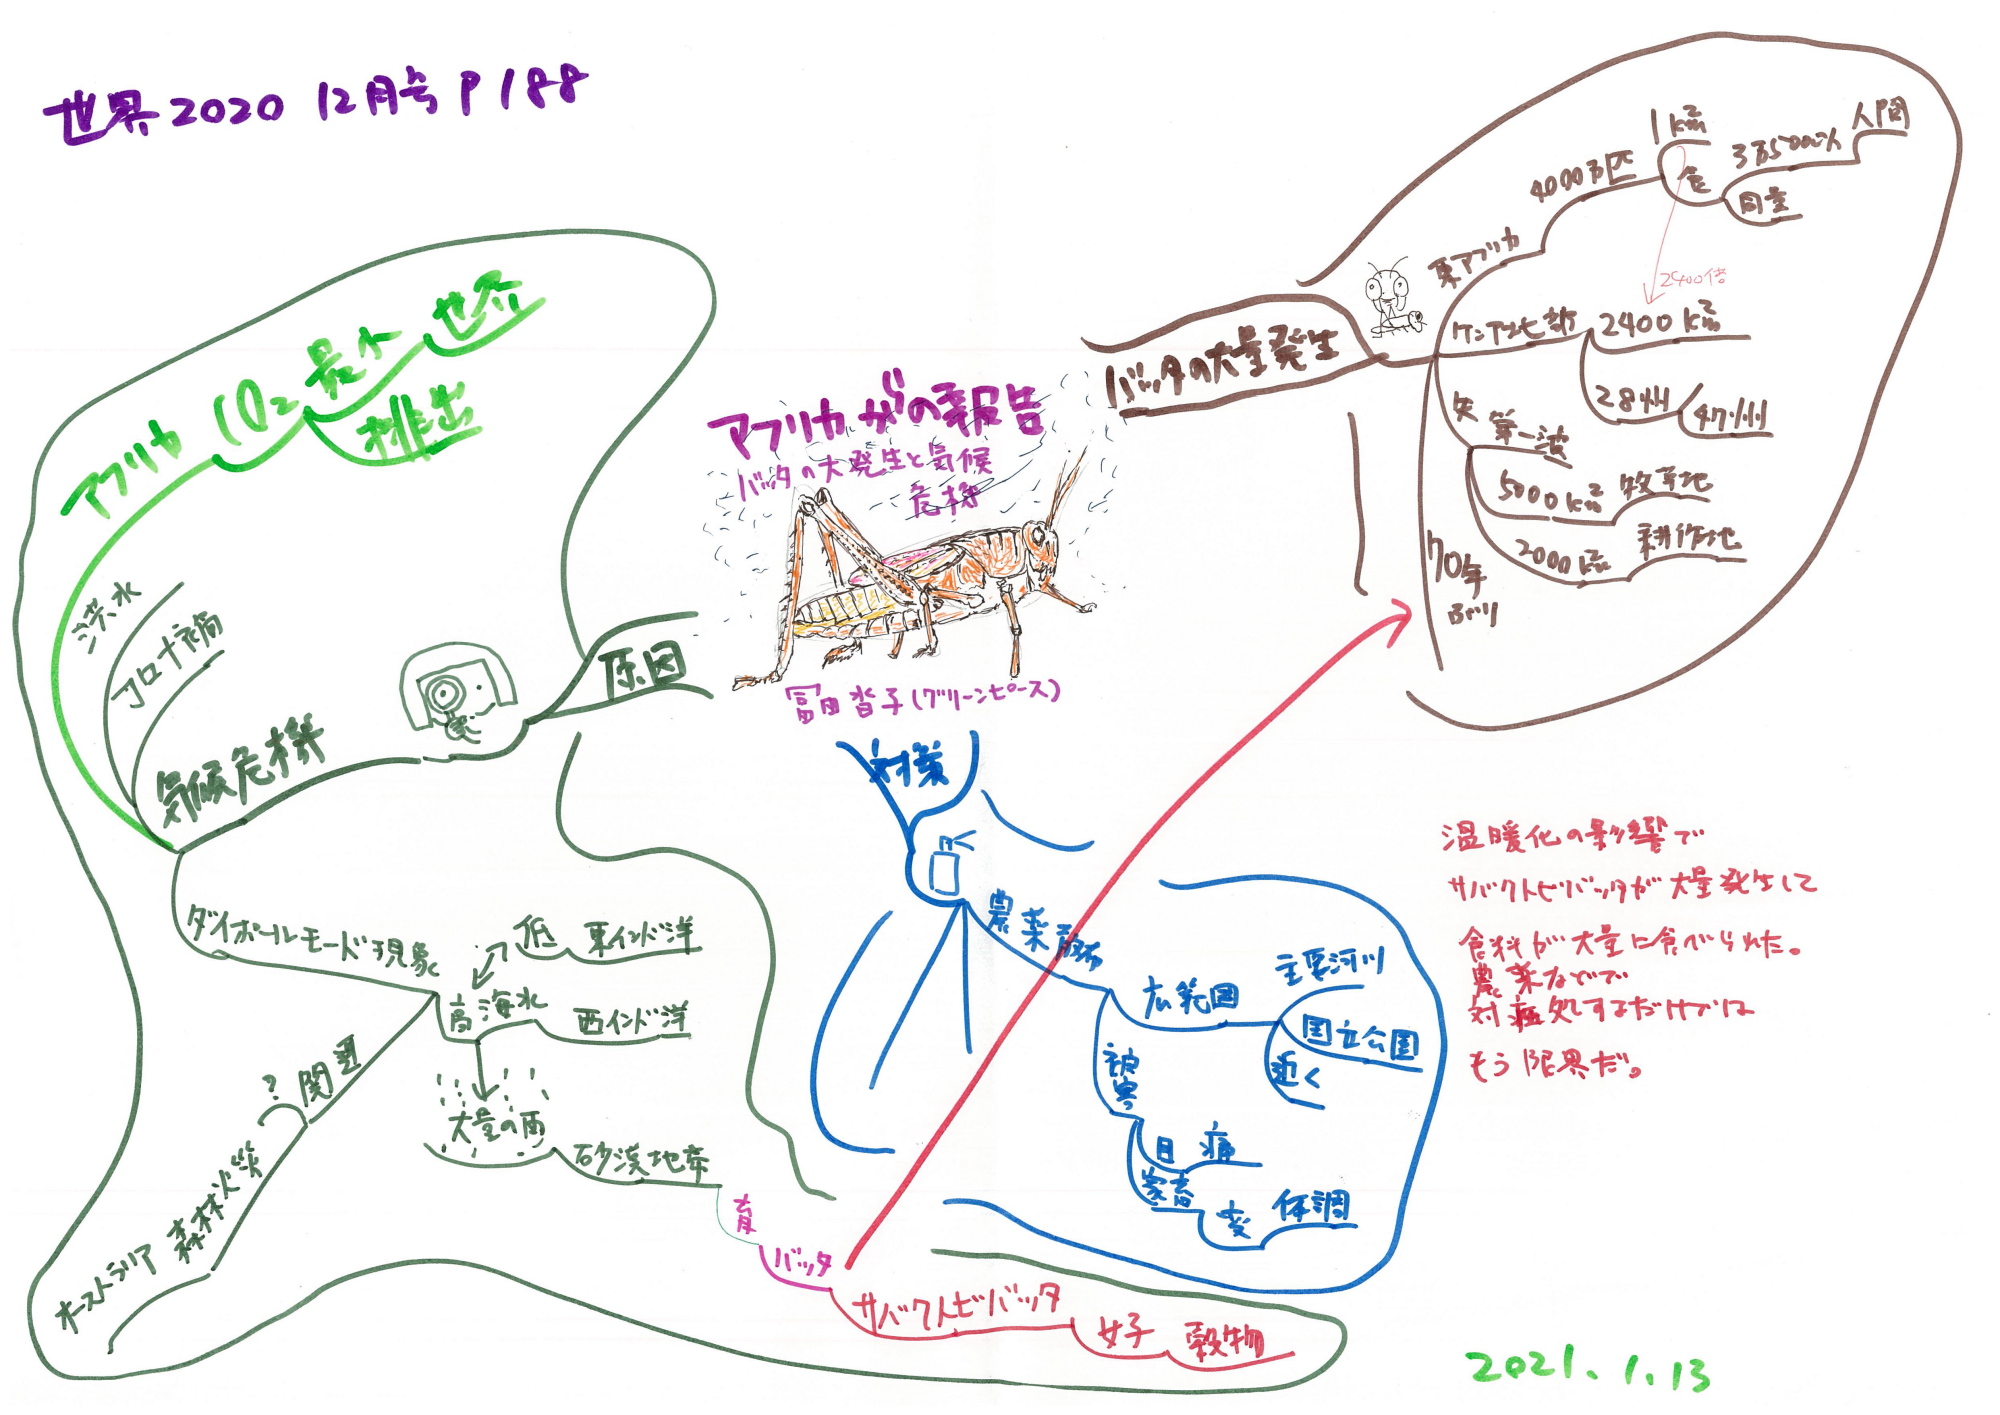 世界2020 12月号 P188
アフリカからの報告
バッタの大発生と気候
危機
冨田沓子(グリーンピース)
バッタの大量発生
東アフリカ
4000万匹
1km²
食
3万5000人
人間
同量
2400倍
ケニア北部
2400km²
28州
47州
失
第一波
5000km²
牧草地
2000km²
耕作地
70年
ぶり
対策
農薬
広範囲
主要河川
国立公園
近く
被害
目
痛
家畜
変
体調
原因
気候危機
アフリカ
CO₂
最小
世界
排出
洪水
コロナ禍
ダイポールモード現象
低
東インド洋
高
海水
西インド洋
大量の雨
砂漠地帯
育
バッタ
サバクトビバッタ
好
穀物
関連
?
森林火災
オーストラリア
温暖化の影響で
サバクトビバッタが大量発生して
食料が大量に食べられた。
農薬などで
対症処しするだけでは
もう限界だ。
2021.1.13